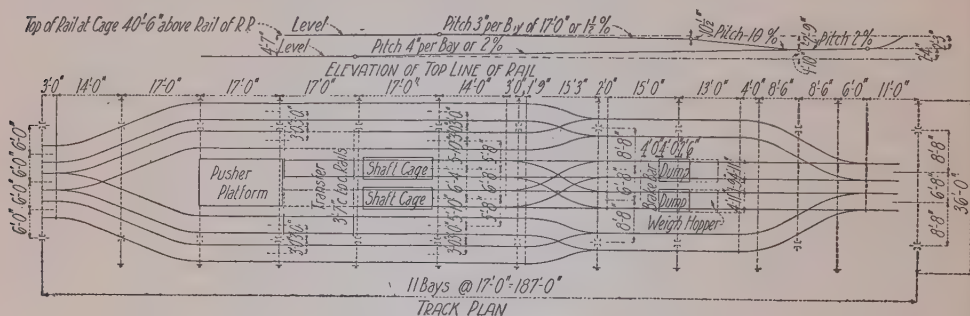 Top of Rail at Cage 40'-6" above Rail of R.R.
Level
Pitch 3" per Bay of 17'-0" or 1½ %
10½"
Pitch 10 %
Pitch 2%
4'-7"
Level
Pitch 4" per Bay or 2%
ELEVATION OF TOP LINE OF RAIL
3'-0" 14'-0" 17'-0" 17'-0" 17'-0" 17'-0" 14'-0" 3'0" 1'9" 15'3" 2'0" 15'0" 13'0" 4'0" 8'6" 8'6" 6'0" 11'0"
6'0" 6'0" 6'0" 6'0"
Pusher Platform
Transfer
3'-7" c. to c. Rails
Shaft Cage
Shaft Cage
5'-10" 6'-4" 5'-10"
5'-8" 6'-8" 5'-8"
8'-8" 6'-8" 8'-8"
Brake Bar
Dump
Dump
Weigh Hopper
8'-8" 6'-8" 8'-8"
36'-0"
11 Bays @ 17'-0"=187'-0"
TRACK PLAN